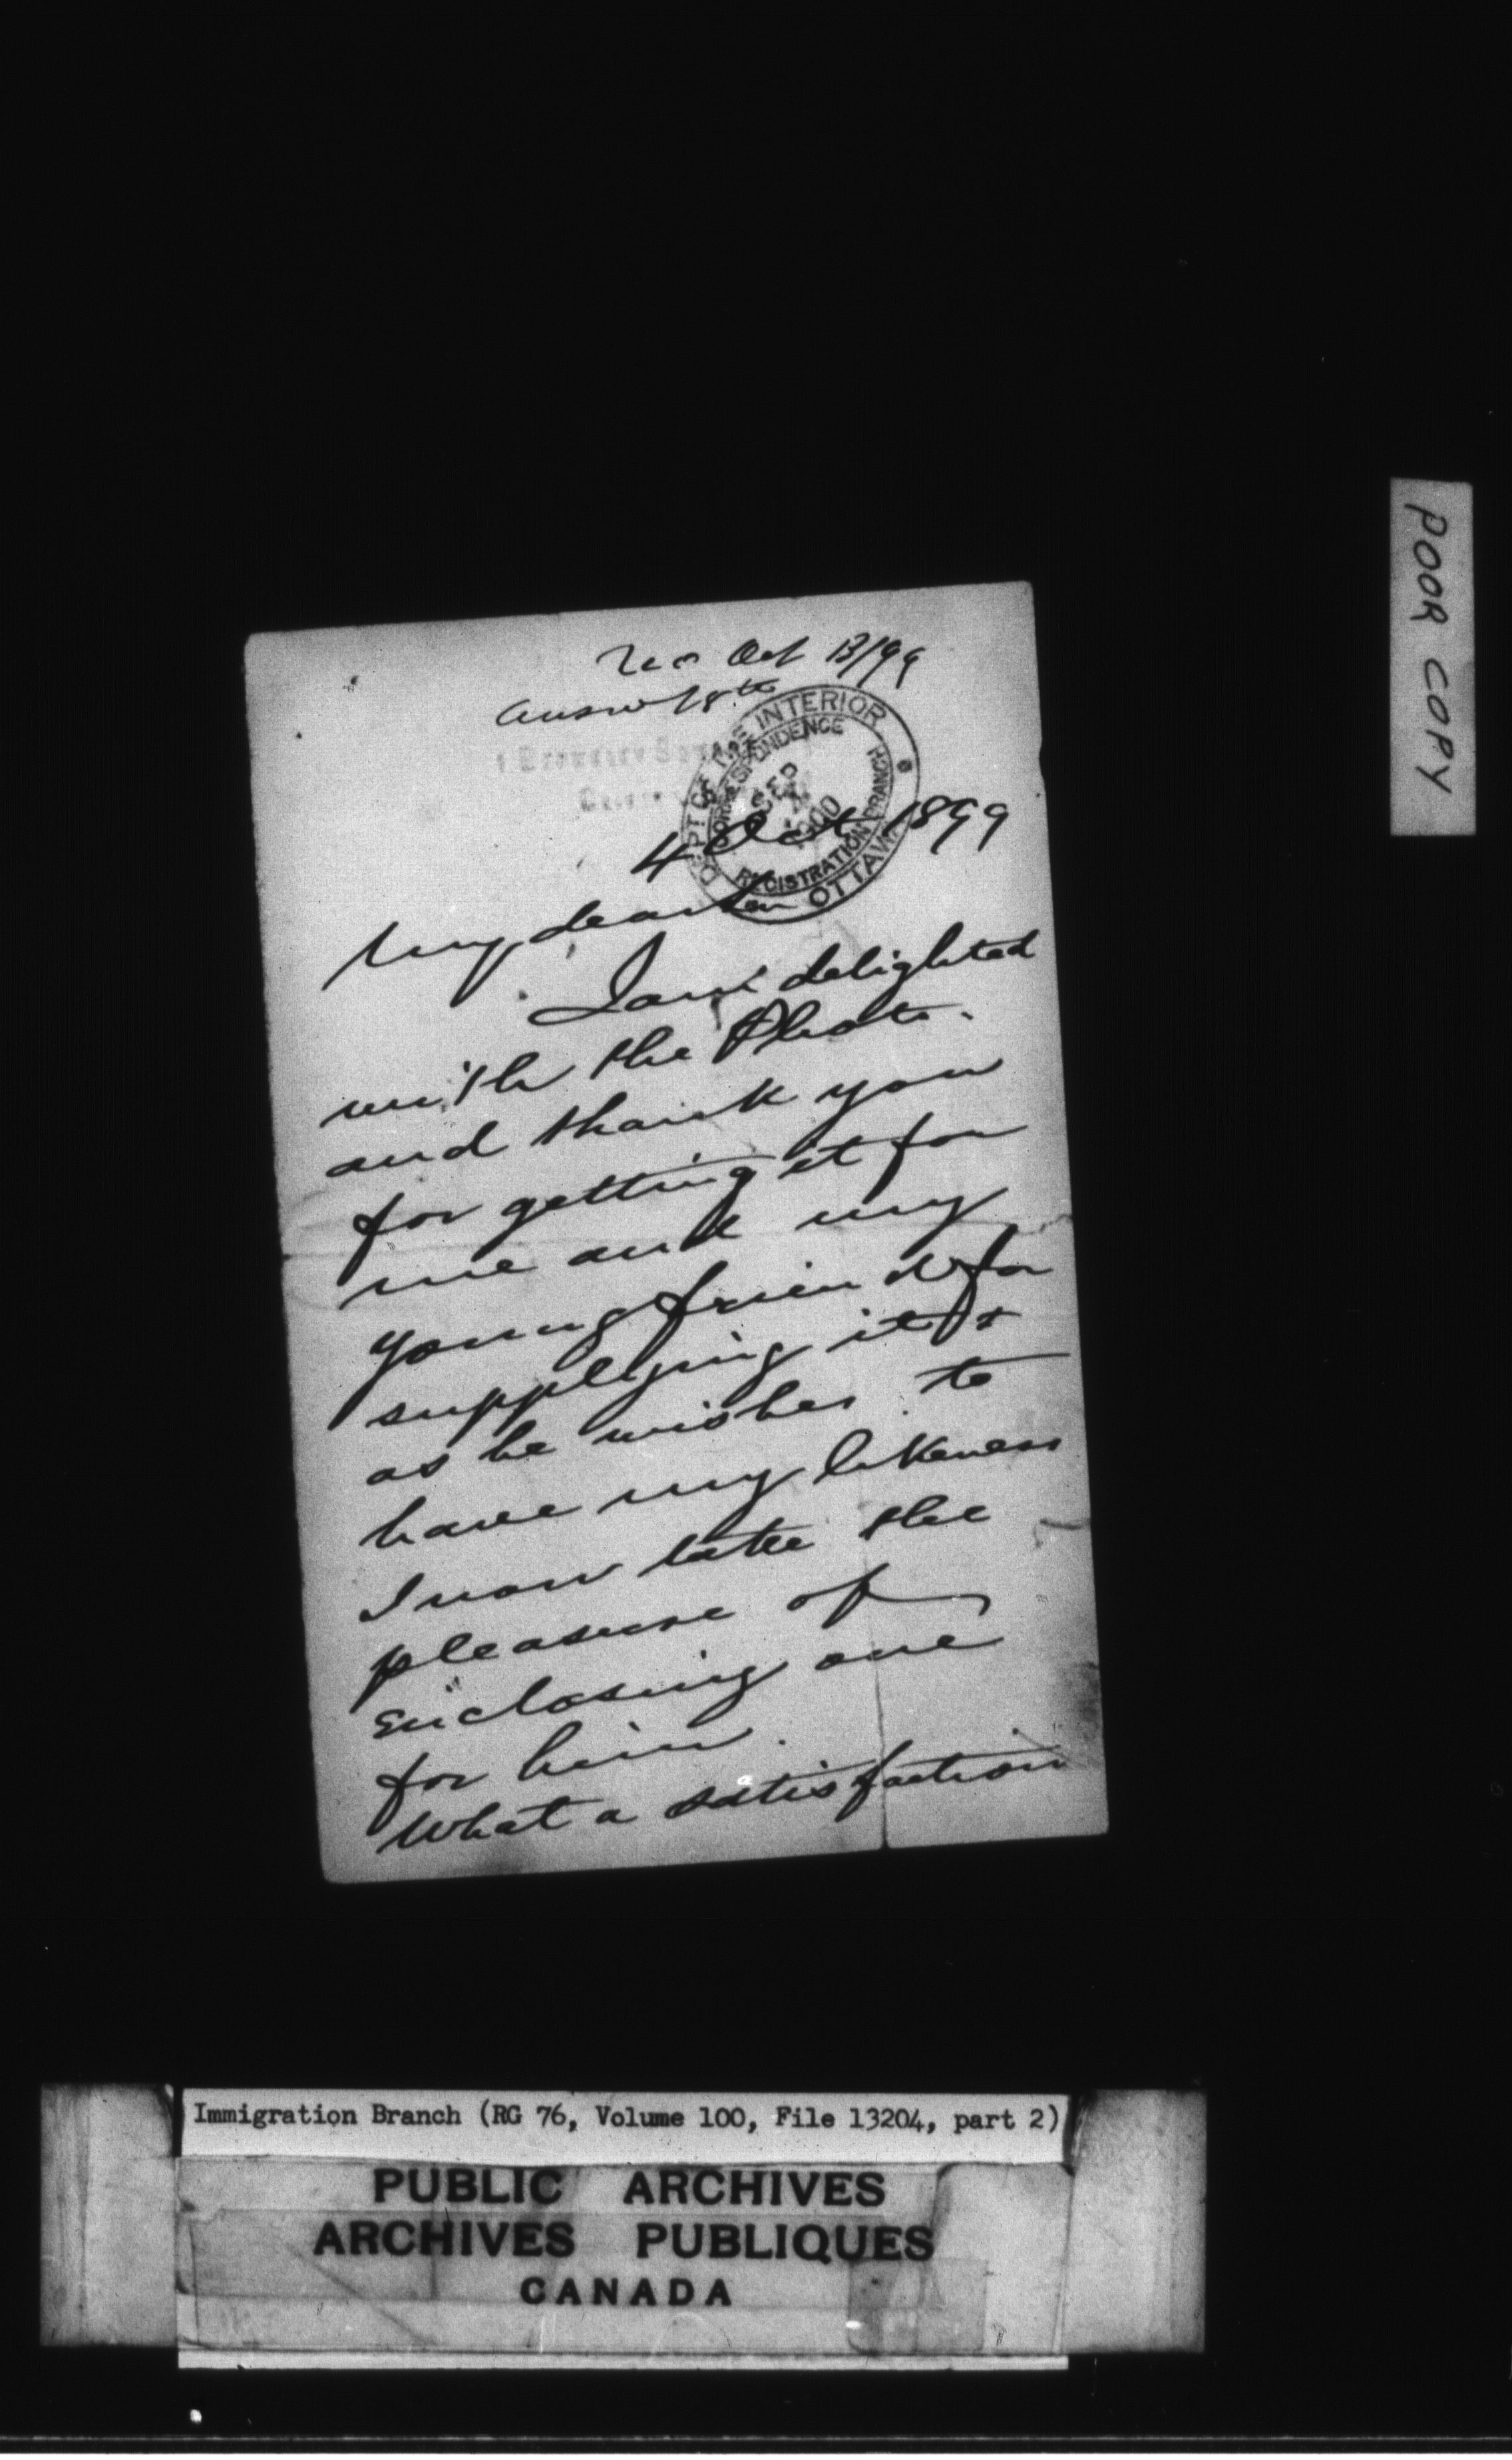 Rec Oct 13/99
Answd 18th
DEPT OF THE INTERIOR
CORRESPONDENCE
SEP
1900
REGISTRATION BRANCH
OTTAWA
4 Oct 1899
My dear
I am delighted
with the Photo.
and thank you
for getting it for
me and my
young friend for
supplying it &
as he wishes to
have my likeness
I now take the
pleasure of
enclosing one
for him.
What a satisfaction
POOR COPY
Immigration Branch (RG 76, Volume 100, File 13204, part 2)
PUBLIC ARCHIVES
ARCHIVES PUBLIQUES
CANADA